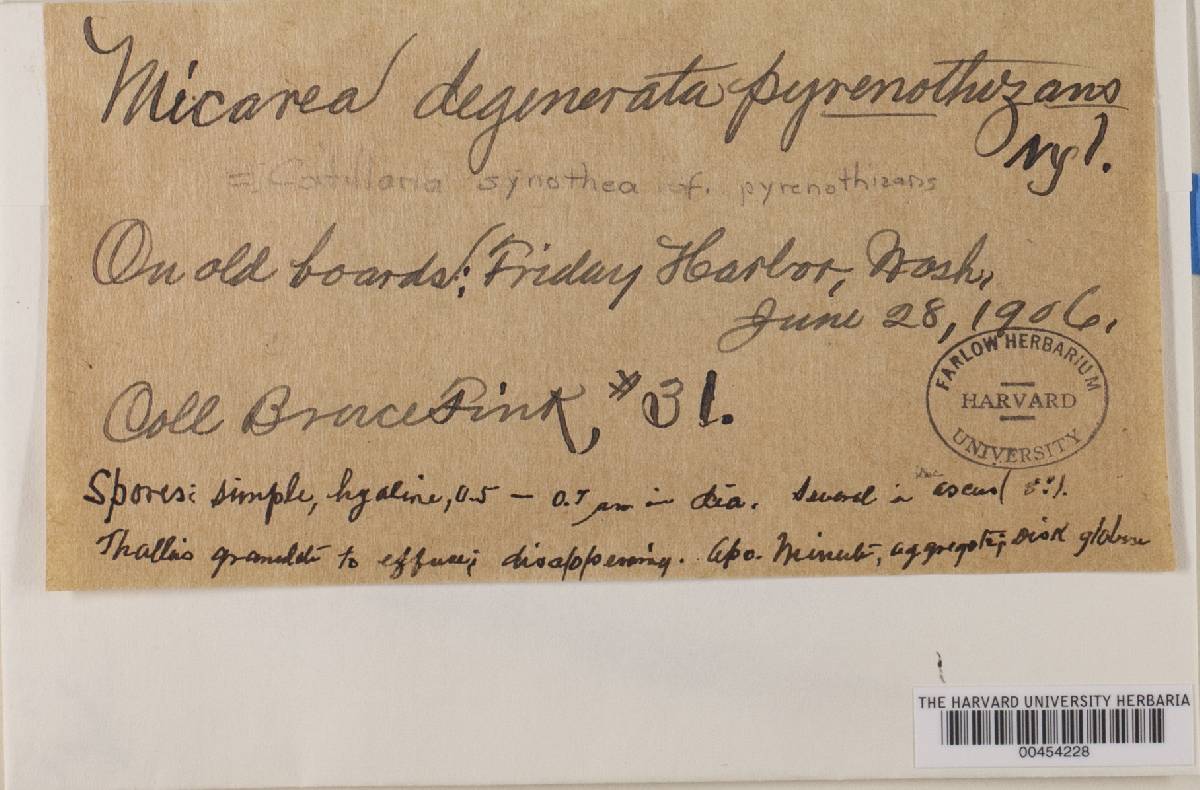 Micarea degenerata pyrenothizans
Nyl.
= Catillaria synothea f. pyrenothizans
On old boards: Friday Harbor, Wash,
June 28, 1906.
Coll Bruce Fink, #31.
FARLOW HERBARIUM
HARVARD
UNIVERSITY
Spores: simple, hyaline, 0.5 – 0.7 µm in dia. Several in ascus
Thallus granulate to effuse; disappearing. Apo. Minute, aggregate; Disk
THE HARVARD UNIVERSITY HERBARIA
00454228